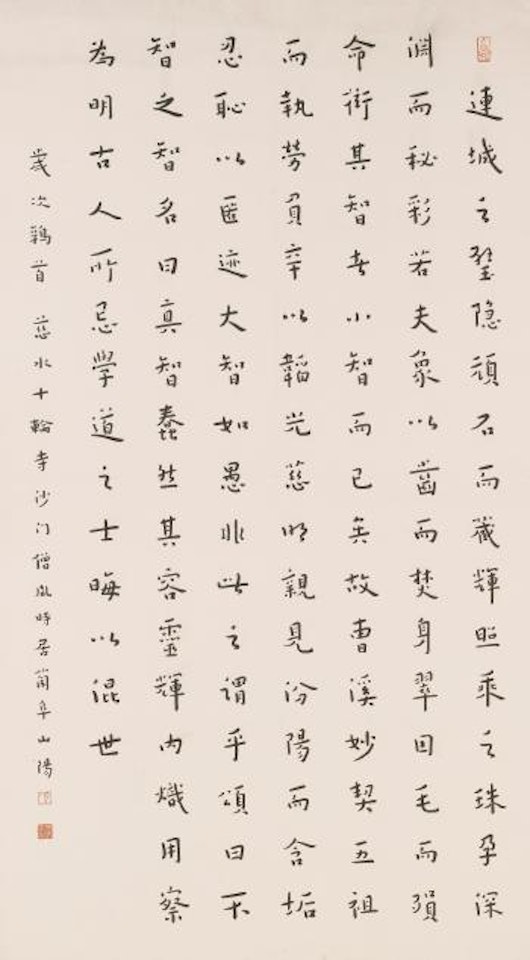 連城之璧隐頑石而藏輝照乘之珠孕深
淵而秘彩若夫象以齒而焚身翠因毛而殞
命衒其智者小智而已矣故曹溪妙契五祖
而執勞負辛以韜光慈明親見汾陽而含垢
忍恥以匿迹大智如愚非此之謂乎頌曰不
智之智名曰真智蠢然其容靈輝內熾用察
為明古人所忌學道之士晦以混世
歲次鶉首 慈水十輪寺沙门僧胤時居阜山陽